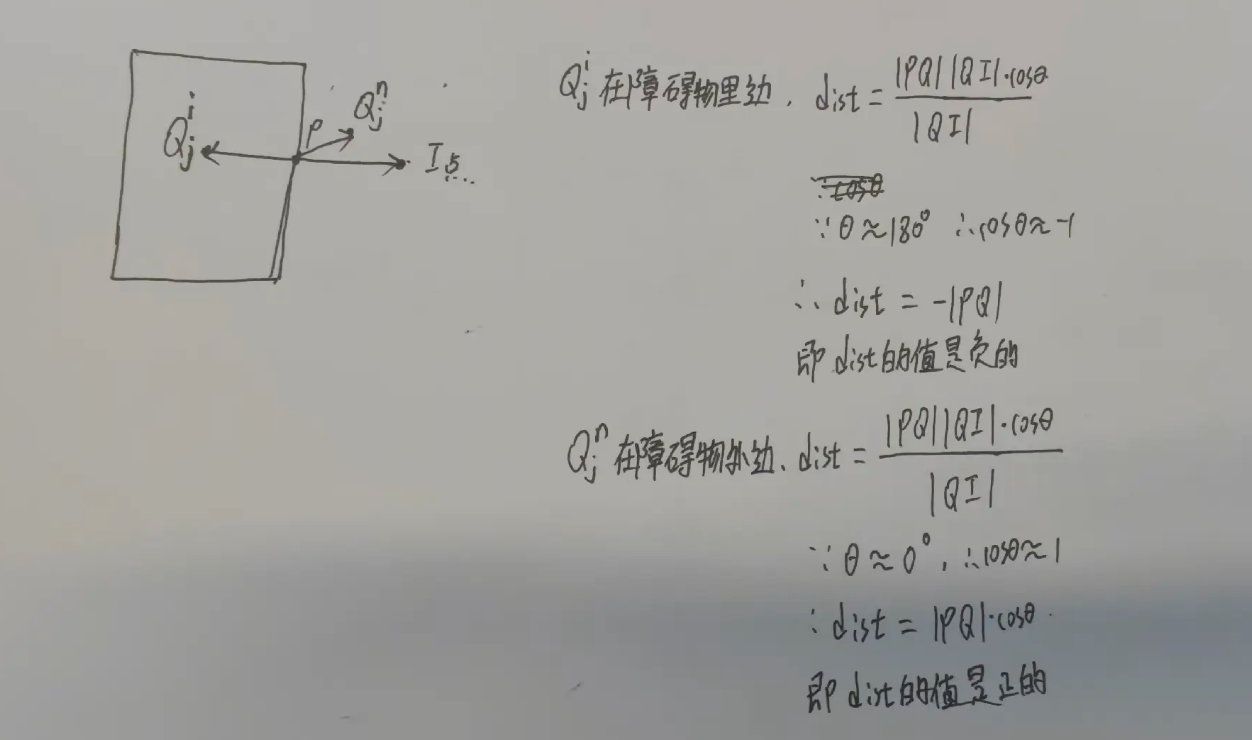 Q_j^i
P
Q_j^n
I点
Q_j^i 在障碍物里边, dist = |PQ||QI|·cosθ / |QI|
∵θ≈180° ∴cosθ≈-1
∴ dist = -|PQ|
即 dist的值是负的
Q_j^n 在障碍物外边, dist = |PQ||QI|·cosθ / |QI|
∵ θ≈0°, ∴cosθ≈1
∴ dist = |PQ|·cosθ
即 dist的值是正的